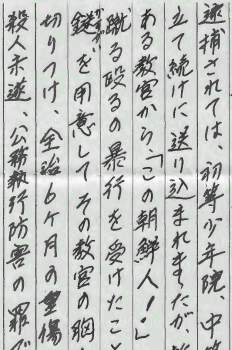 逮捕されては、初等少年院、中等
立て続けに送り込まれましたが、
ある教官から、「この朝鮮人!」
蹴る殴るの暴行を受けたこと
を用意してその教官の胸
切りつけ 全治6ケ月の重傷
殺人未遂、公務執行防害の罪で